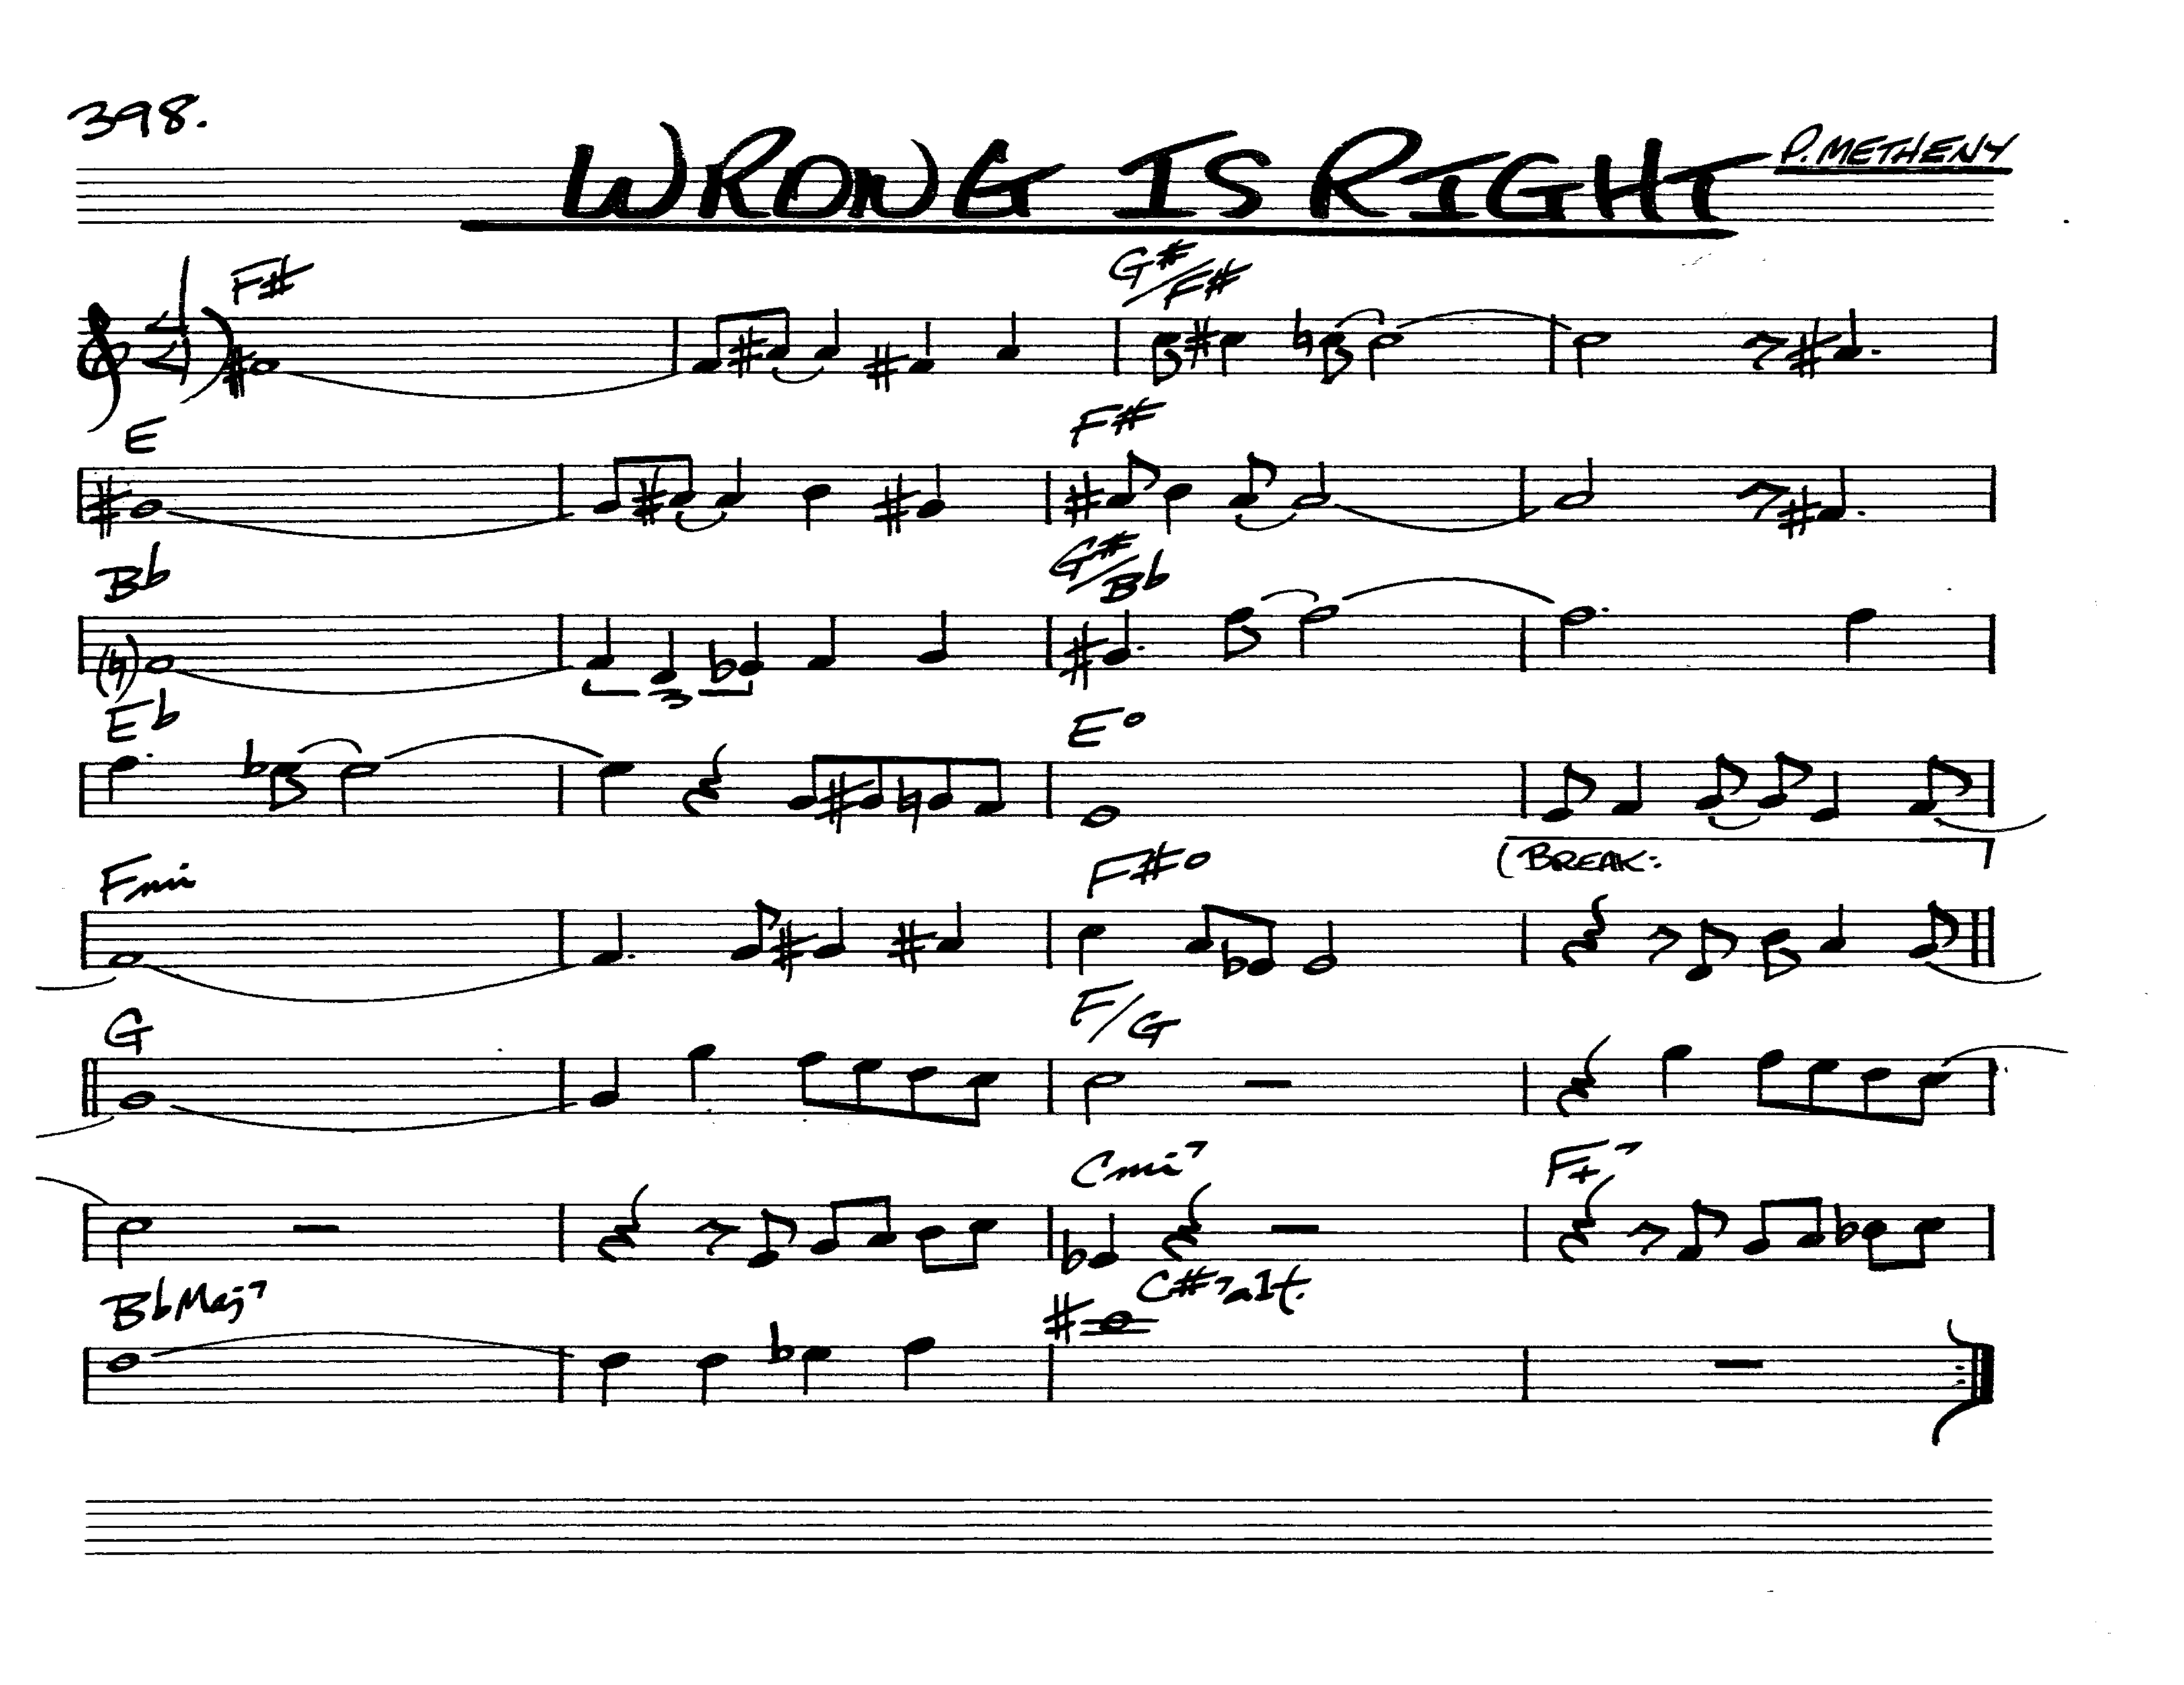 398.
WRONG IS RIGHT
P. METHENY
F# G#/F#
E F#
Bb G#/Bb
3
Eb E°
Fmi F#° (BREAK:
G F/G
Cmi7 F+7
BbMaj7 C#7alt.